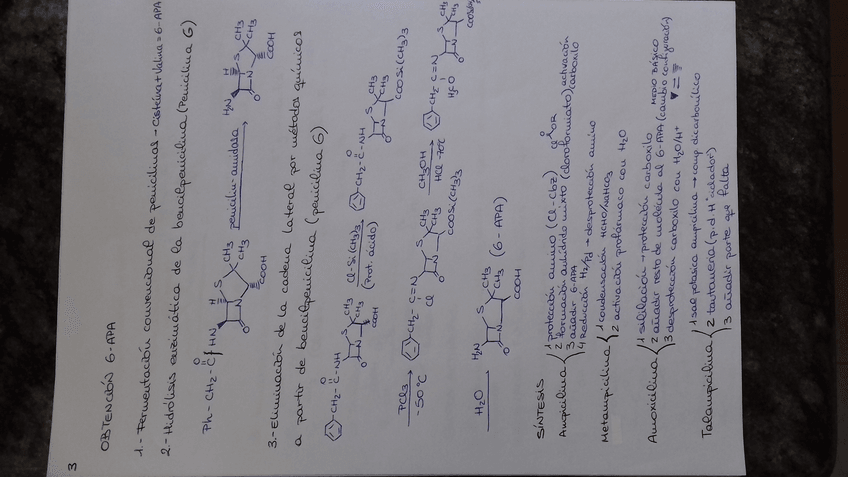 3
OBTENCIÓN 6-APA
1.- Fermentación convencional de penicilinas → cisteína + valina = 6-APA
2.- Hidrólisis enzimática de la bencilpenicilina (Penicilina G)
Ph-CH2-C-HN H S CH3 CH3 N O COOH penicilin-amidasa H2N H S CH3 CH3 N O COOH
3.- Eliminación de la cadena lateral por métodos químicos
a partir de bencilpenicilina (penicilina G)
CH2-C-NH O S CH3 CH3 N O COOH Cl-Si(CH3)3 (Prot. ácido) CH2-C-NH O S CH3 CH3 N O COOSi(CH3)3
PCl3 -50ºC CH2-C=N Cl S CH3 CH3 N O COOSi(CH3)3 CH3OH HCl -70ºC CH2-C=N H3C O S CH3 CH3 N O
H2O H2N S CH3 CH3 N O COOH (6-APA)
SÍNTESIS
Ampicilina
1 protección amino (Cl-Cbz)
2 formación anhidrido mixto (cloroformato) activación carboxilo Cl O OR
3 añadir 6-APA
4 Reducción H2/Pd → desprotección amino
Metampicilina
1 condensación HCHO/NaHCO3
2 activación profármaco con H2O
Amoxicilina
1 sililación → protección carboxilo
2 añadir resto de molécula al 6-APA (cambio configuración) MEDIO BÁSICO
3 desprotección carboxilo con H2O/H+
Talampicilina
1 sal potásica ampicilina → comp dicarbonílico
2 tautomería (p d H+ ciclador)
3 añadir parte q falta